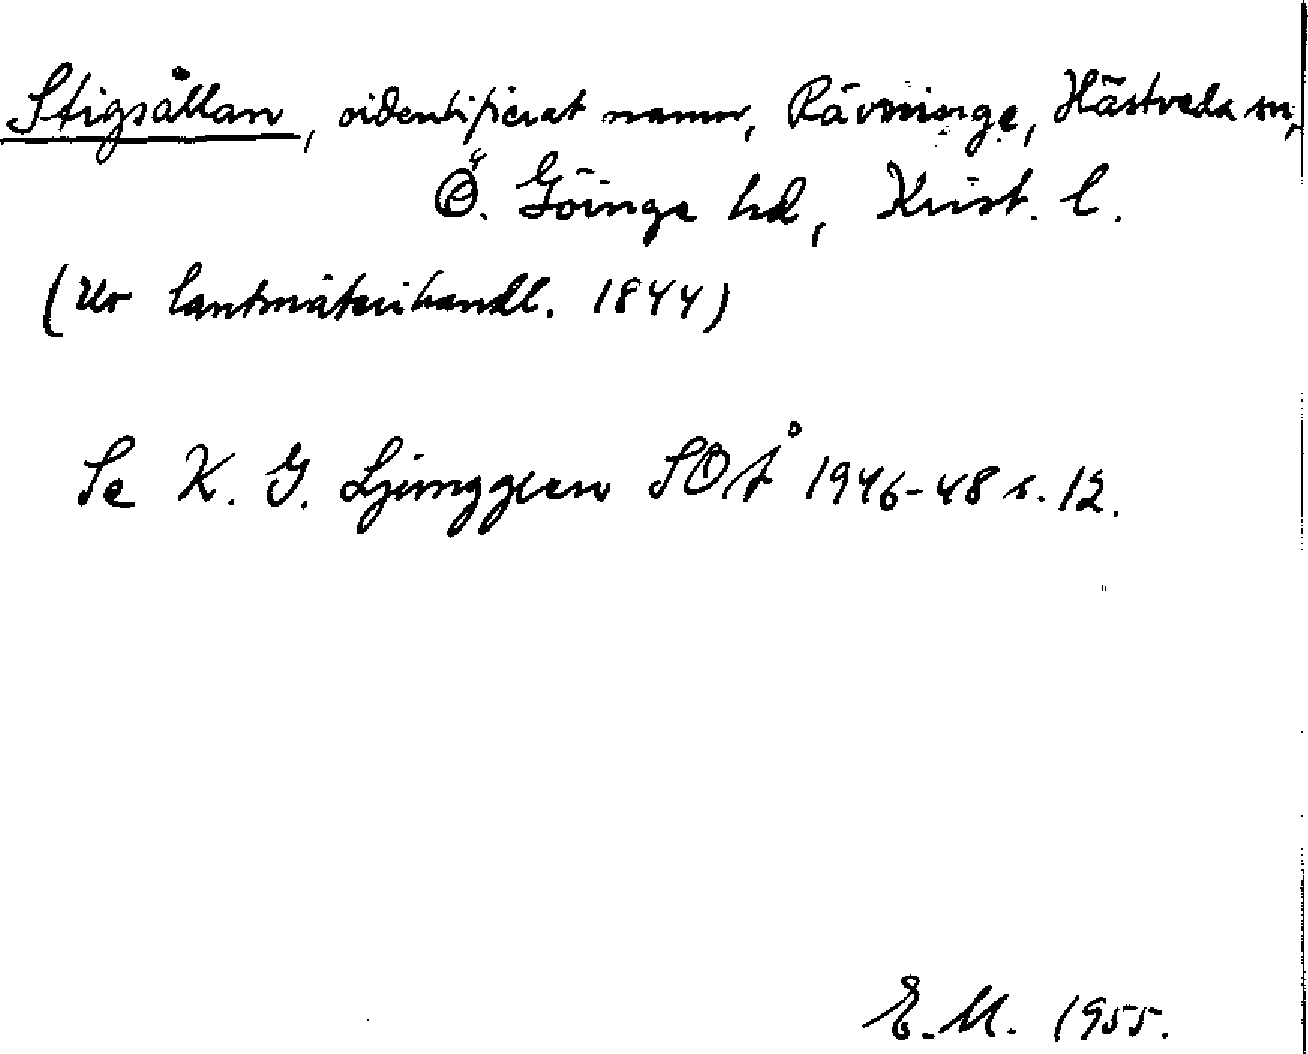 Stigsållan, oidentifierat namn, Rävninge, Hästveda sn,
Ö. Göinge hd, Krist. l.
(Ur lantmäterihandl. 1844)
Se K. G. Ljunggren SOÅ 1946-48 s. 12.
E. M. 1955.